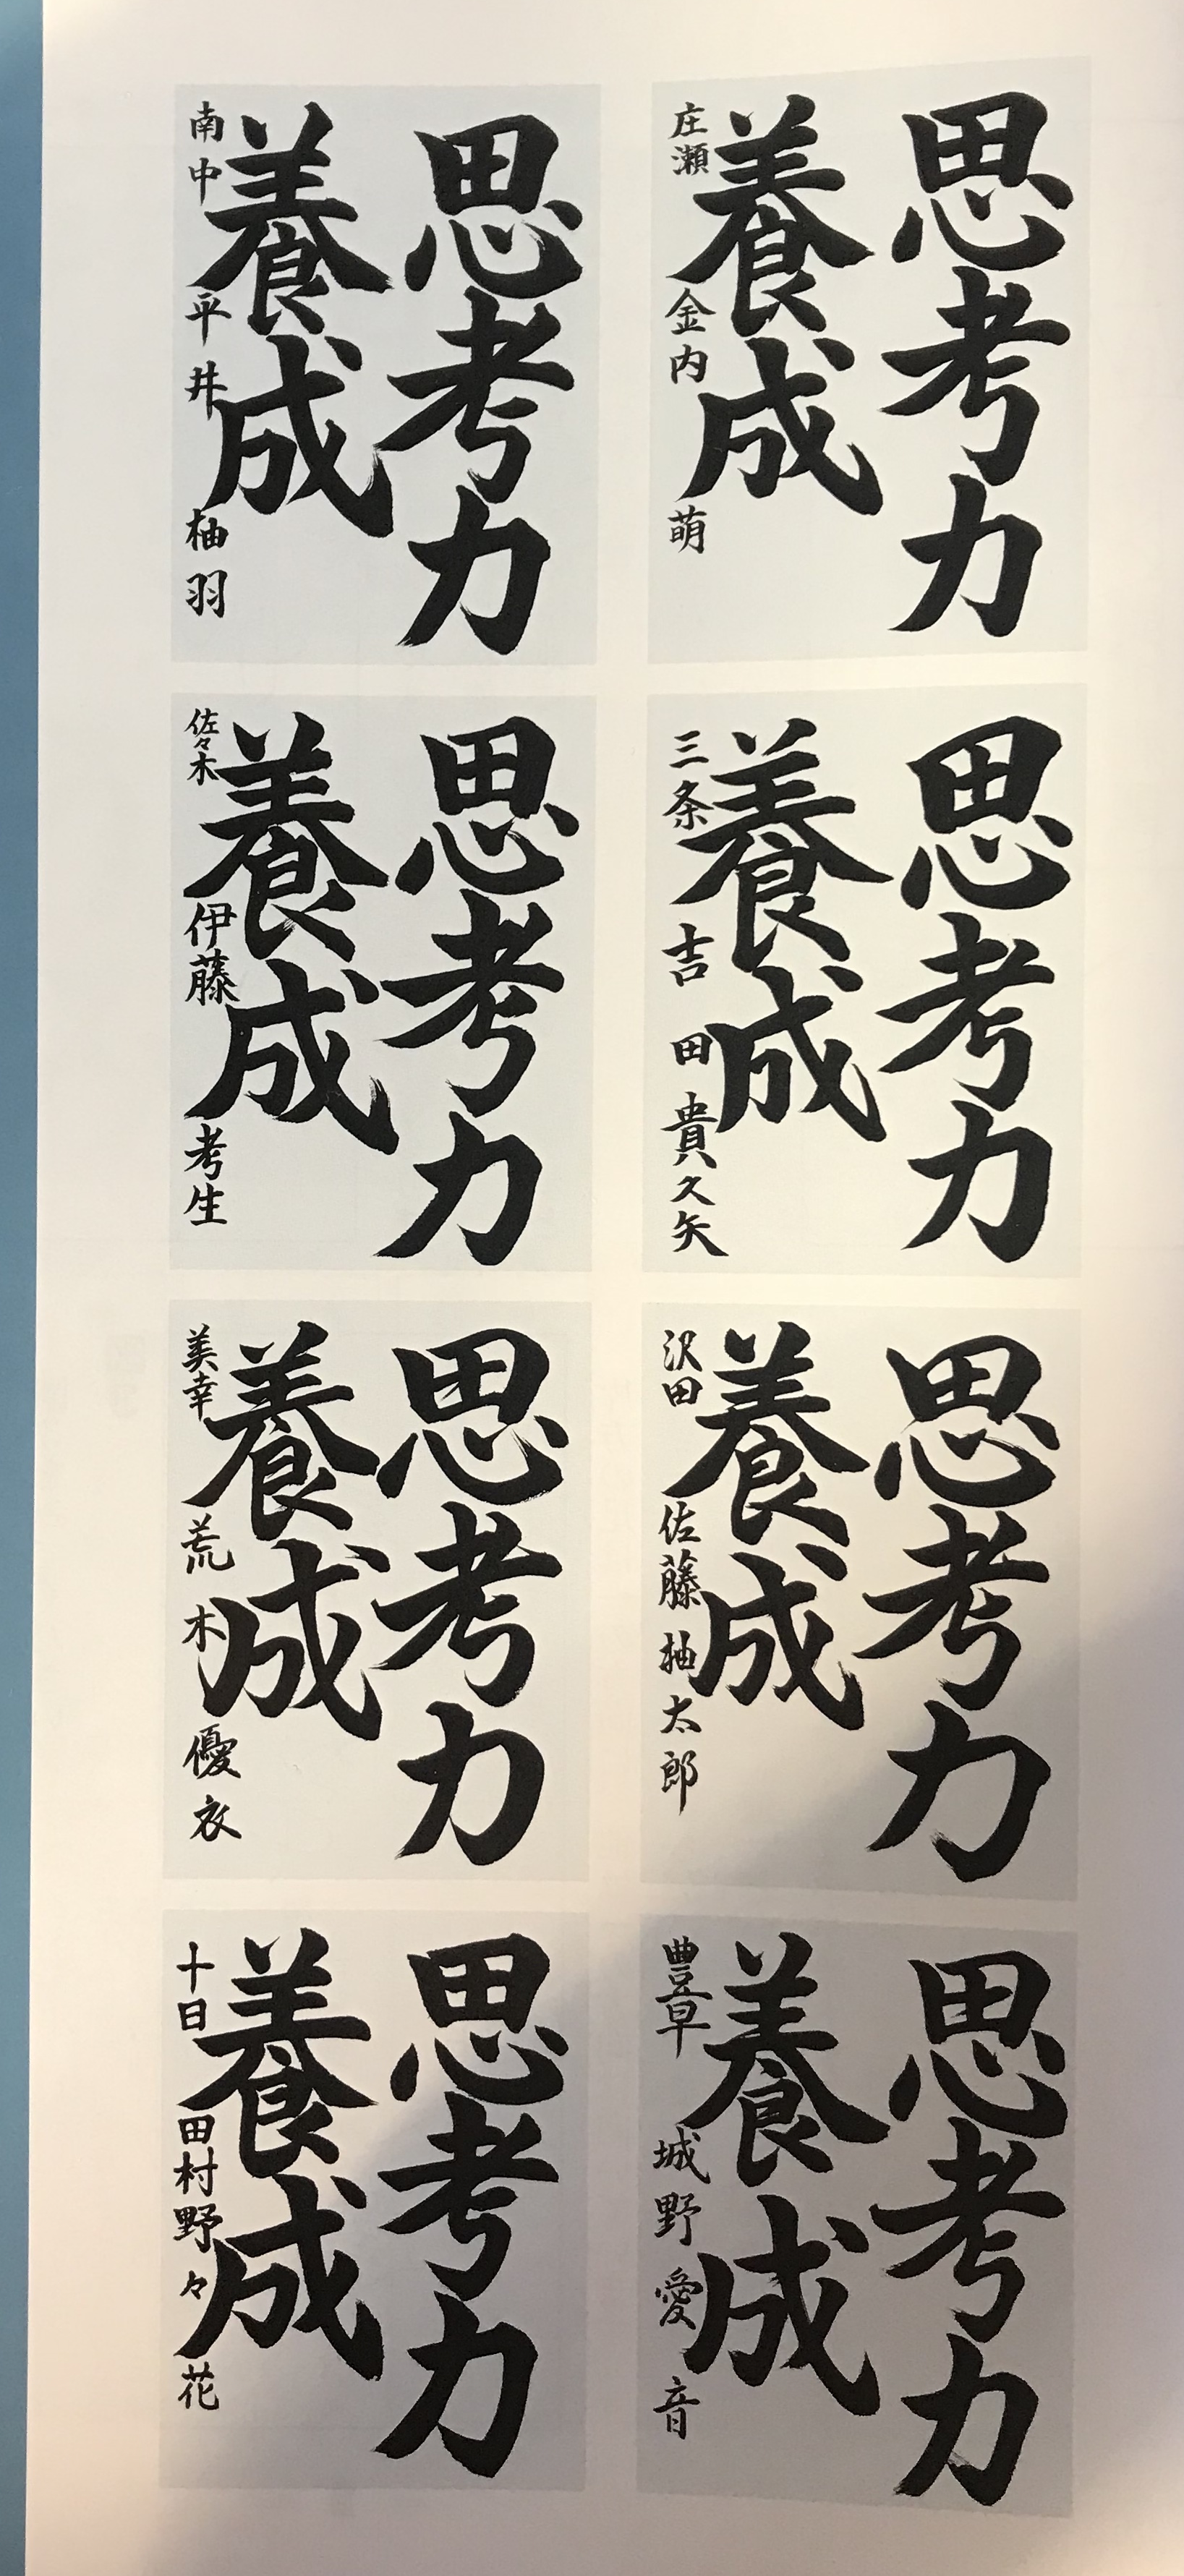 思考力
養成
庄瀬 金内 萌
思考力
養成
南中 平井 柚羽
思考力
養成
三条 吉田 貴久矢
思考力
養成
佐々木 伊藤 考生
思考力
養成
沢田 佐藤 柚太郎
思考力
養成
美幸 荒木 優衣
思考力
養成
豊草 城野 愛音
思考力
養成
十日 田村 野々花